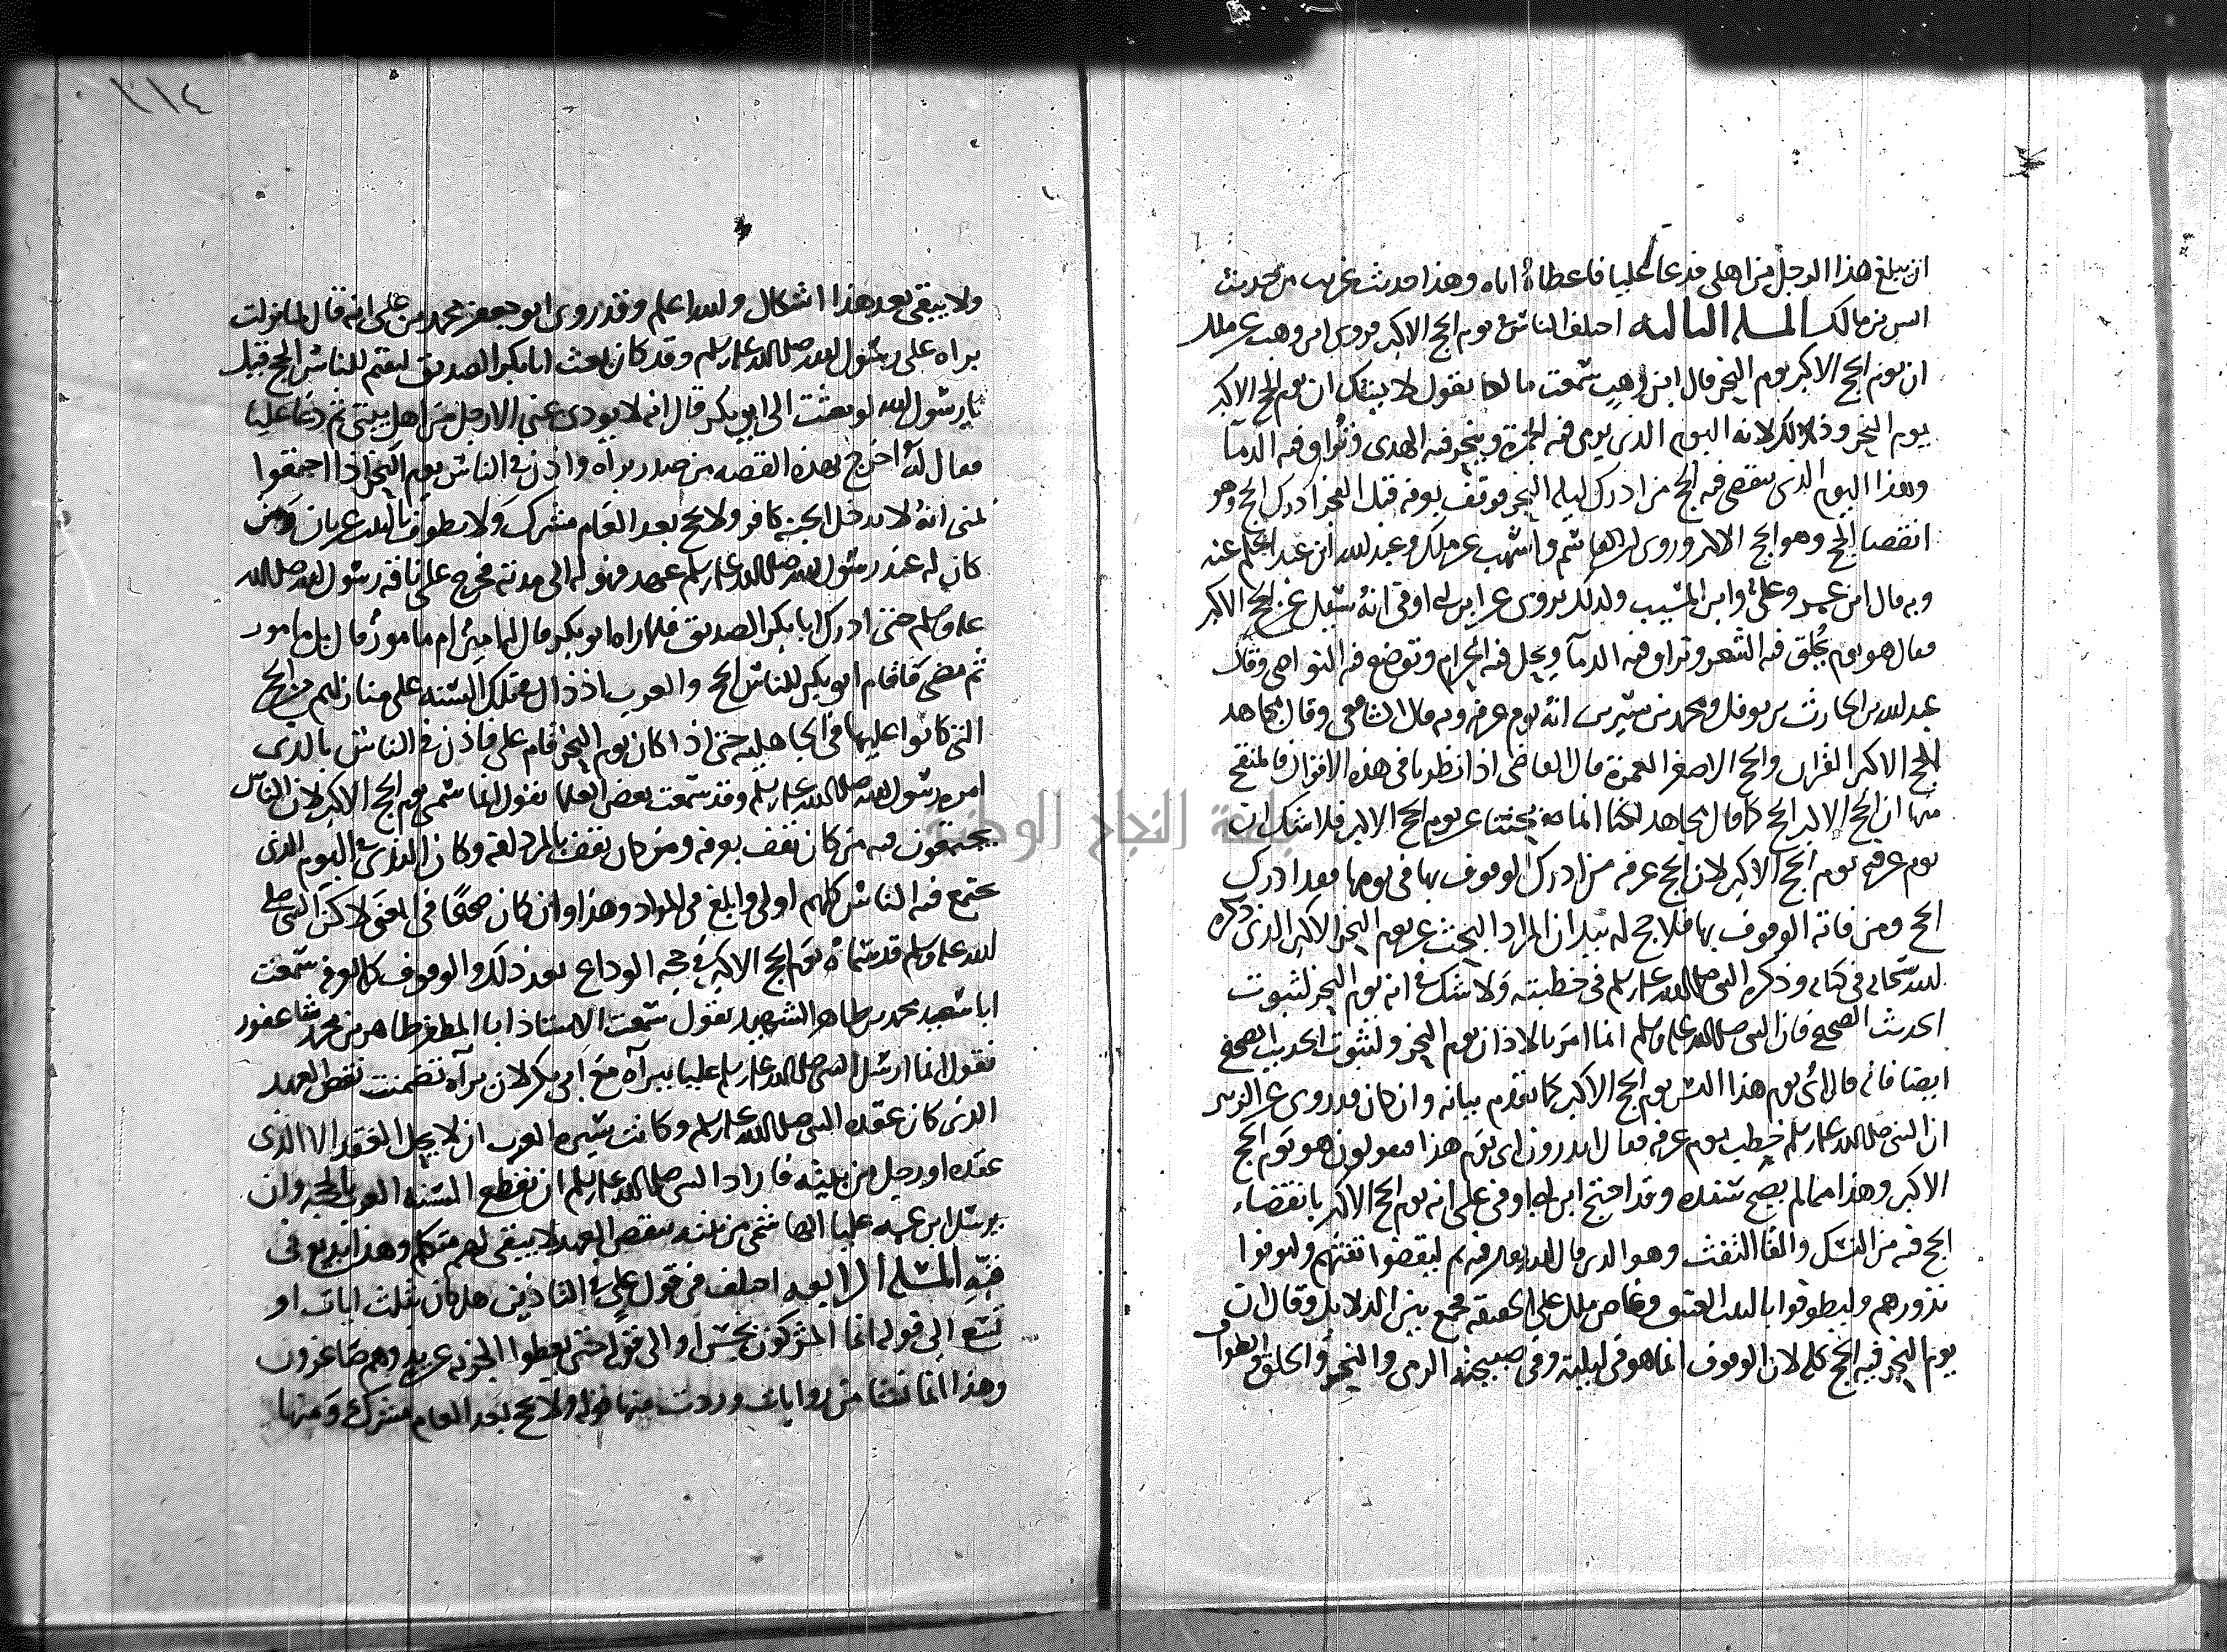 ان يبلغ هذا الا رجل من اهلي فدعا عليا فاعطاه اياه وهذا حديث غريب من حديث
انس بن مالك المسله الثالثه اختلف الناس في يوم الحج الاكبر فروى ابن وهب عن ملك
ان يوم الحج الاكبر يوم النحر قال ابن وهب سمعت مالكا يقول لا يشك ان يوم الحج الاكبر
يوم النحر وذلك لانه اليوم الذي يرمى فيه الجمرة وينحر فيه الهدى وتراق فيه الدمآ
وهذا اليوم الذي ينقضى فيه الحج من ادرك ليله النحر فوقف بعرفه قبل الفجر ادرك الحج وهو
انقضا الحج وهو الحج الاكبر وروى ابن القاسم واشهب عن ملك وعبد الله ابن عبد الحكم عنه
وبه قال ابن عمر وعلي وابن المسيب وكذلك يروى عن ابن ابي اوفى انه سيل عن الحج الاكبر
فقال هو يوم يحلق فيه الشعر وتراق فيه الدمآ ويحل فيه الحرام وتوضع فيه النواصي وقال
عبد الله بن الحارث بن نوفل ومحمد بن سيرين انه يوم عرفه وبه قال الشافعي وقال مجاهد
الحج الاكبر القران والحج الاصغر العمرة قال القاضي اذا نظرنا في هذه الاقوال فالمنقح
منها ان الحج الاكبر الحج كما قال مجاهد لكنا انما بحثنا عن يوم الحج الاكبر فلا شك ان
يوم عرفه يوم الحج الاكبر لان الحج عرفه من ادرك الوقوف بها في يومها فقد ادرك
الحج ومن فاته الوقوف بها فلا حج له بيد ان المراد البحث عن يوم النحر الاكبر الذي ذكره
الله سبحانه في كتابه وذكره النبي صلى الله عليه وسلم في خطبته ولا شك في انه يوم النحر لثبوت
الحديث الصحيح فان النبي صلى الله عليه وسلم انما امر بالاذان يوم النحر ولثبوت الحديث الصحيح
ايضا فانه قال اي يوم هذا اليس يوم الحج الاكبر كما تقدم بيانه وان كان قد روى عن الزبير
ان النبي صلى الله عليه وسلم خطب يوم عرفه فقال اتدرون اي يوم هذا فيقولون هو يوم الحج
الاكبر وهذا مما لم يصح سنده وقد احتج ابن ابي اوفى على انه يوم الحج الاكبر بانقضاء
الحج فيه من النسك والقا التفث وهو الذي قال الله تعالى فيه ثم ليقضوا تفثهم وليوفوا
نذورهم وليطوفوا بالبيت العتيق وغاص ملك على الحقيقه فجمع بين الدلايل وقال ان
يوم النحر فيه الحج كله لان الوقوف انما هو في ليلته وفي صبيحته الرمى والنحر والحلق والطواف
١١٤
ولا يبقى بعد هذا اشكال والله اعلم وقد روى ابو جعفر محمد بن على انه قال لما نزلت
براه على رسول الله صلى الله عليه وسلم وقد كان بعث ابا بكر الصديق ليقيم للناس الحج قيل
يا رسول الله لو بعثت الى ابي بكر قال انه لا يودى عني الا رجل من اهل بيتي ثم دعا عليا
فقال له اخرج بهذه القصه من صدر براه واذن في الناس يوم النحر اذا اجتمعوا
بمنى انه لا يدخل الجنة كافر ولا يحج بعد العام مشرك ولا يطوف بالبيت عريان ومن
كان له عند رسول الله صلى الله عليه وسلم عهد فهو له الى مدته فخرج على ناقه رسول الله صلى الله
عليه وسلم حتى ادرك ابا بكر الصديق فلما راه ابو بكر قال امير ام مامور قال بل مامور
ثم مضى فاقام ابو بكر للناس الحج والعرب اذ ذاك في تلك السنه على منازلهم من الحج
التي كانوا عليها في الجاهليه حتى اذا كان يوم النحر قام على فاذن في الناس بالذى
امره رسول الله صلى الله عليه وسلم وقد سمعت بعض العلما يقول انما سمي يوم الحج الاكبر لان الناس
يجتمعون فيه من كان يقف بعرفه ومن كان يقف بالمزدلفه وكان الندى في اليوم الذى
يجتمع فيه الناس كلهم اولى وابلغ في المراد وهذا وان كان صحيحا في المعنى لاكن النبي صلى
الله عليه وسلم قد سماه يوم الحج الاكبر في حجه الوداع بعد ذلك والوقوف كله بعرفه سمعت
ابا سعيد محمد بن طاهر الشهيد يقول سمعت الاستاذ ابا المظفر طاهر بن محمد شاه عفور
يقول انما ارسل النبي صلى الله عليه وسلم عليا ببرآه مع ابي بكر لان برآه تضمنت نقض العهد
الذي كان عقده النبي صلى الله عليه وسلم وكانت سيره العرب ان لا يحل العقد الا الذى
عقده او رجل من بيته فاراد النبي صلى الله عليه وسلم ان يقطع السنه العرب بالحجه وان
يرسل ابن عمه عليا الهاشمي من بيته ينقض العهد لا يبقى لهم متكلم وهذا بديع في
فنه المسله الرابعه اختلف في قول على في التاذين هل كان بثلث ايات او
تسع الى قوله انما المشركون نجس او الى قوله حتى يعطوا الجزيه عن يد وهم صاغرون
وهذا انما نشا من روايات وردت منها قوله ولا يحج بعد العام مشرك ومنها
جامعة النجاح الوطنية